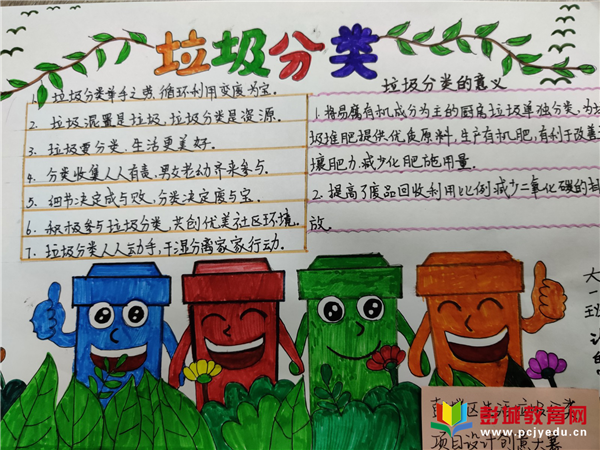 垃圾分类
1. 垃圾分类举手之劳,循环利用变废为宝.
2. 垃圾混置是垃圾,垃圾分类是资源.
3. 垃圾要分类,生活更美好.
4. 分类收集人人有责,男女老幼齐来参与.
5. 细节决定成与败,分类决定废与宝.
6. 积极参与垃圾分类,共创优美社区环境.
7. 垃圾分类人人动手,干湿分离家家行动.
垃圾分类的意义
1.将易腐有机成分为主的厨房垃圾单独分类,为垃
圾堆肥提供优质原料,生产有机肥,有利于改善土
壤肥力,减少化肥施用量.
2.提高了废品回收利用比例,减少二氧化碳的
放.
大
一
班
区生活垃圾分类
项目设计创意大赛
彭城教育网
www.pcjyedu.cn